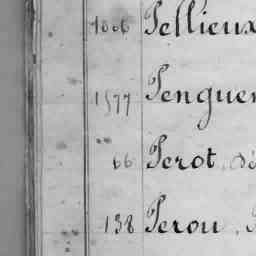 1806 Pellieux
1577 Penguer
66 Perot
138 Perou,